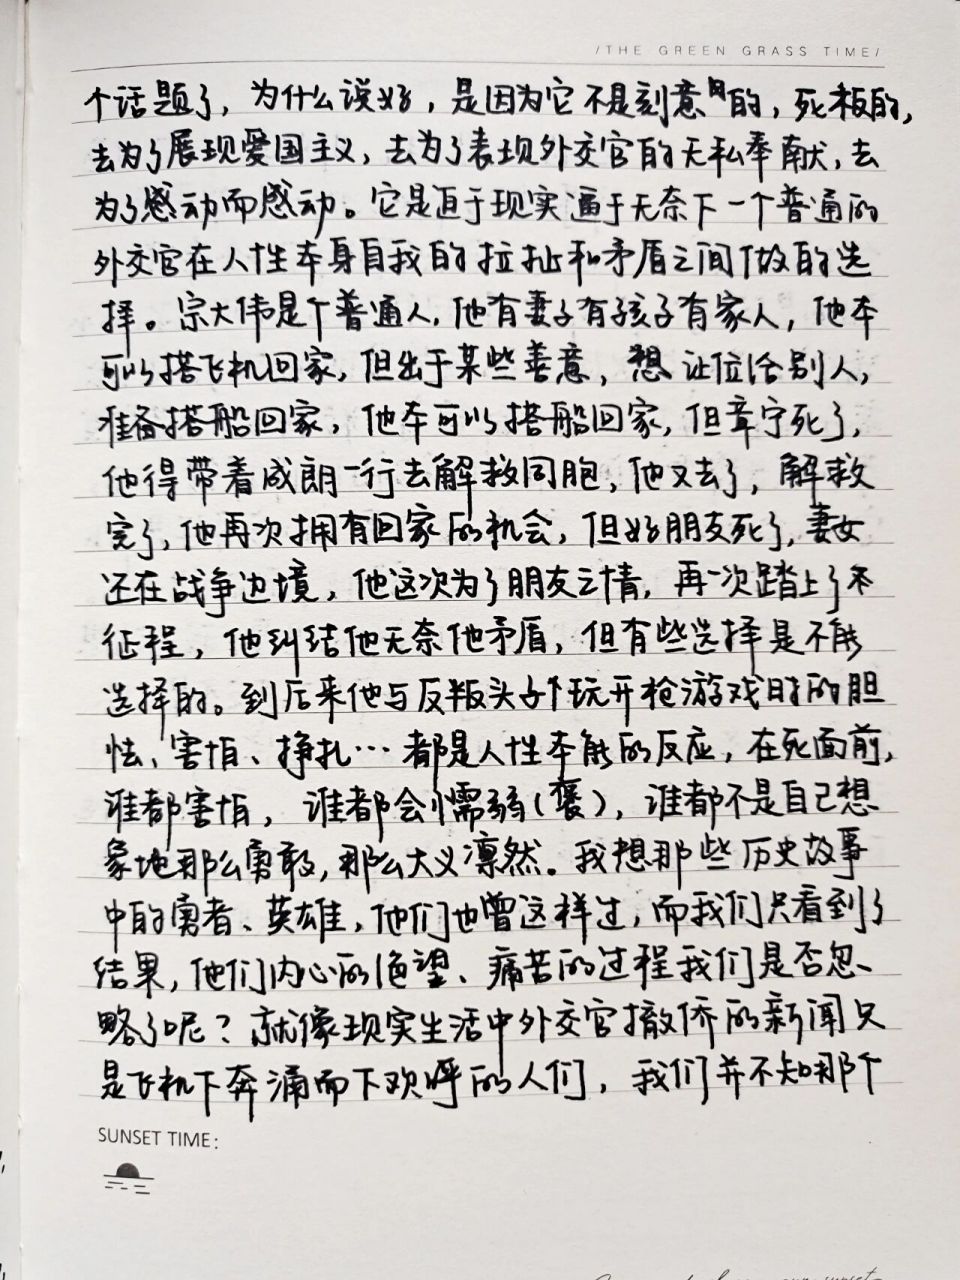 /THE GREEN GRASS TIME/
个话题了，为什么说好，是因为它不是刻意的，死板的，
去为了展现爱国主义，去为了表现外交官的无私奉献，去
为了感动而感动。它是迫于现实逼于无奈下一个普通的
外交官在人性本身自我的拉扯和矛盾之间做的选
择。宗大伟是个普通人，他有妻子有孩子有家人，他本
可以搭飞机回家，但出于某些善意，想让位给别人，
准备搭船回家，他本可以搭船回家，但章宁死了，
他得带着成朗一行去解救同胞，他又去了，解救
完了，他再次拥有回家的机会，但好朋友死了，妻女
还在战争边境，他这次为了朋友之情，再一次踏上了不
征程，他纠结他无奈他矛盾，但有些选择是不能
选择的。到后来他与反叛头子个玩开枪游戏时的胆
怯、害怕、挣扎…都是人性本能的反应，在死面前，
谁都害怕，谁都会懦弱（褒），谁都不是自己想
象地那么勇敢，那么大义凛然。我想那些历史故事
中的勇者、英雄，他们也曾这样过，而我们只看到了
结果，他们内心的绝望、痛苦的过程我们是否忽
略了呢？就像现实生活中外交官撤侨的新闻只
是飞机下奔涌而下欢呼的人们，我们并不知那个
SUNSET TIME: